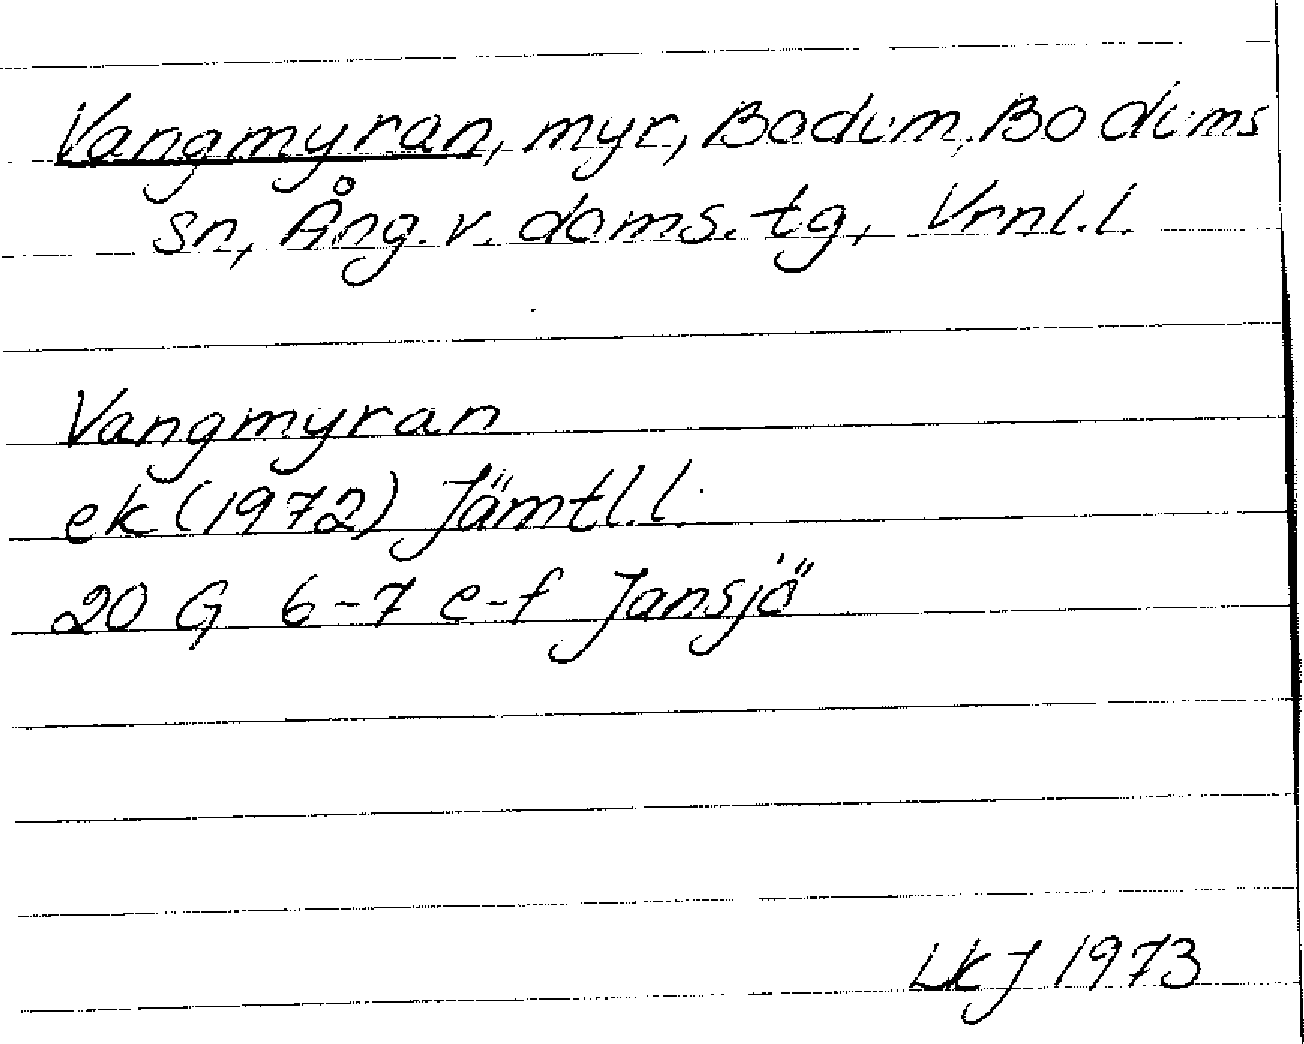 Vangmyran, myr, Bodum, Bodums
sn, Ång. v. doms. tg, Vrnl.l.
Vangmyran
ek (1972) Jämtl.l.
20 G 6-7 e-f Jansjö
LKJ 1973